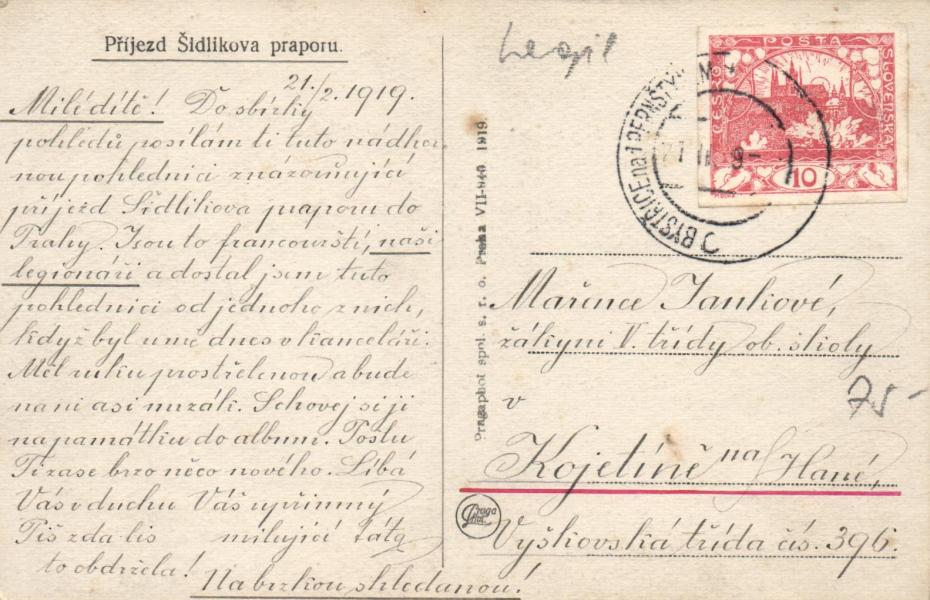 Příjezd Šidlikova praporu.
21./2. 1919.
Milé dítě! Do sbírky
pohledů posílám ti tuto nádher-
nou pohlednici znázorňující
příjezd Šidlikova praporu do
Prahy. Jsou to francouzští, naši
legionáři a dostal jsem tuto
pohlednici od jednoho z nich,
když byl u mě dnes v kanceláři.
Měl ruku prostřelenou a bude
na ni asi mrzák. Schovej si ji
na památku do album. Pošlu
Ti zase brzo něco nového. Líbá
Vás v duchu Váš upřímný
Piš zda-lis milující táta
to obdržela! Na brzkou shledanou!
Pragaphot spol. s. r. o. Praha VII-940 1919.
ČESKO POŠTA SLOVENSKÁ
10
BYSTŘICE na PERNŠTÝNEM
Mařence Jankové,
žákyni V. třídy ob. školy
v
Kojetíně na Hané,
Vyškovská třída čís. 396.
75
Praga